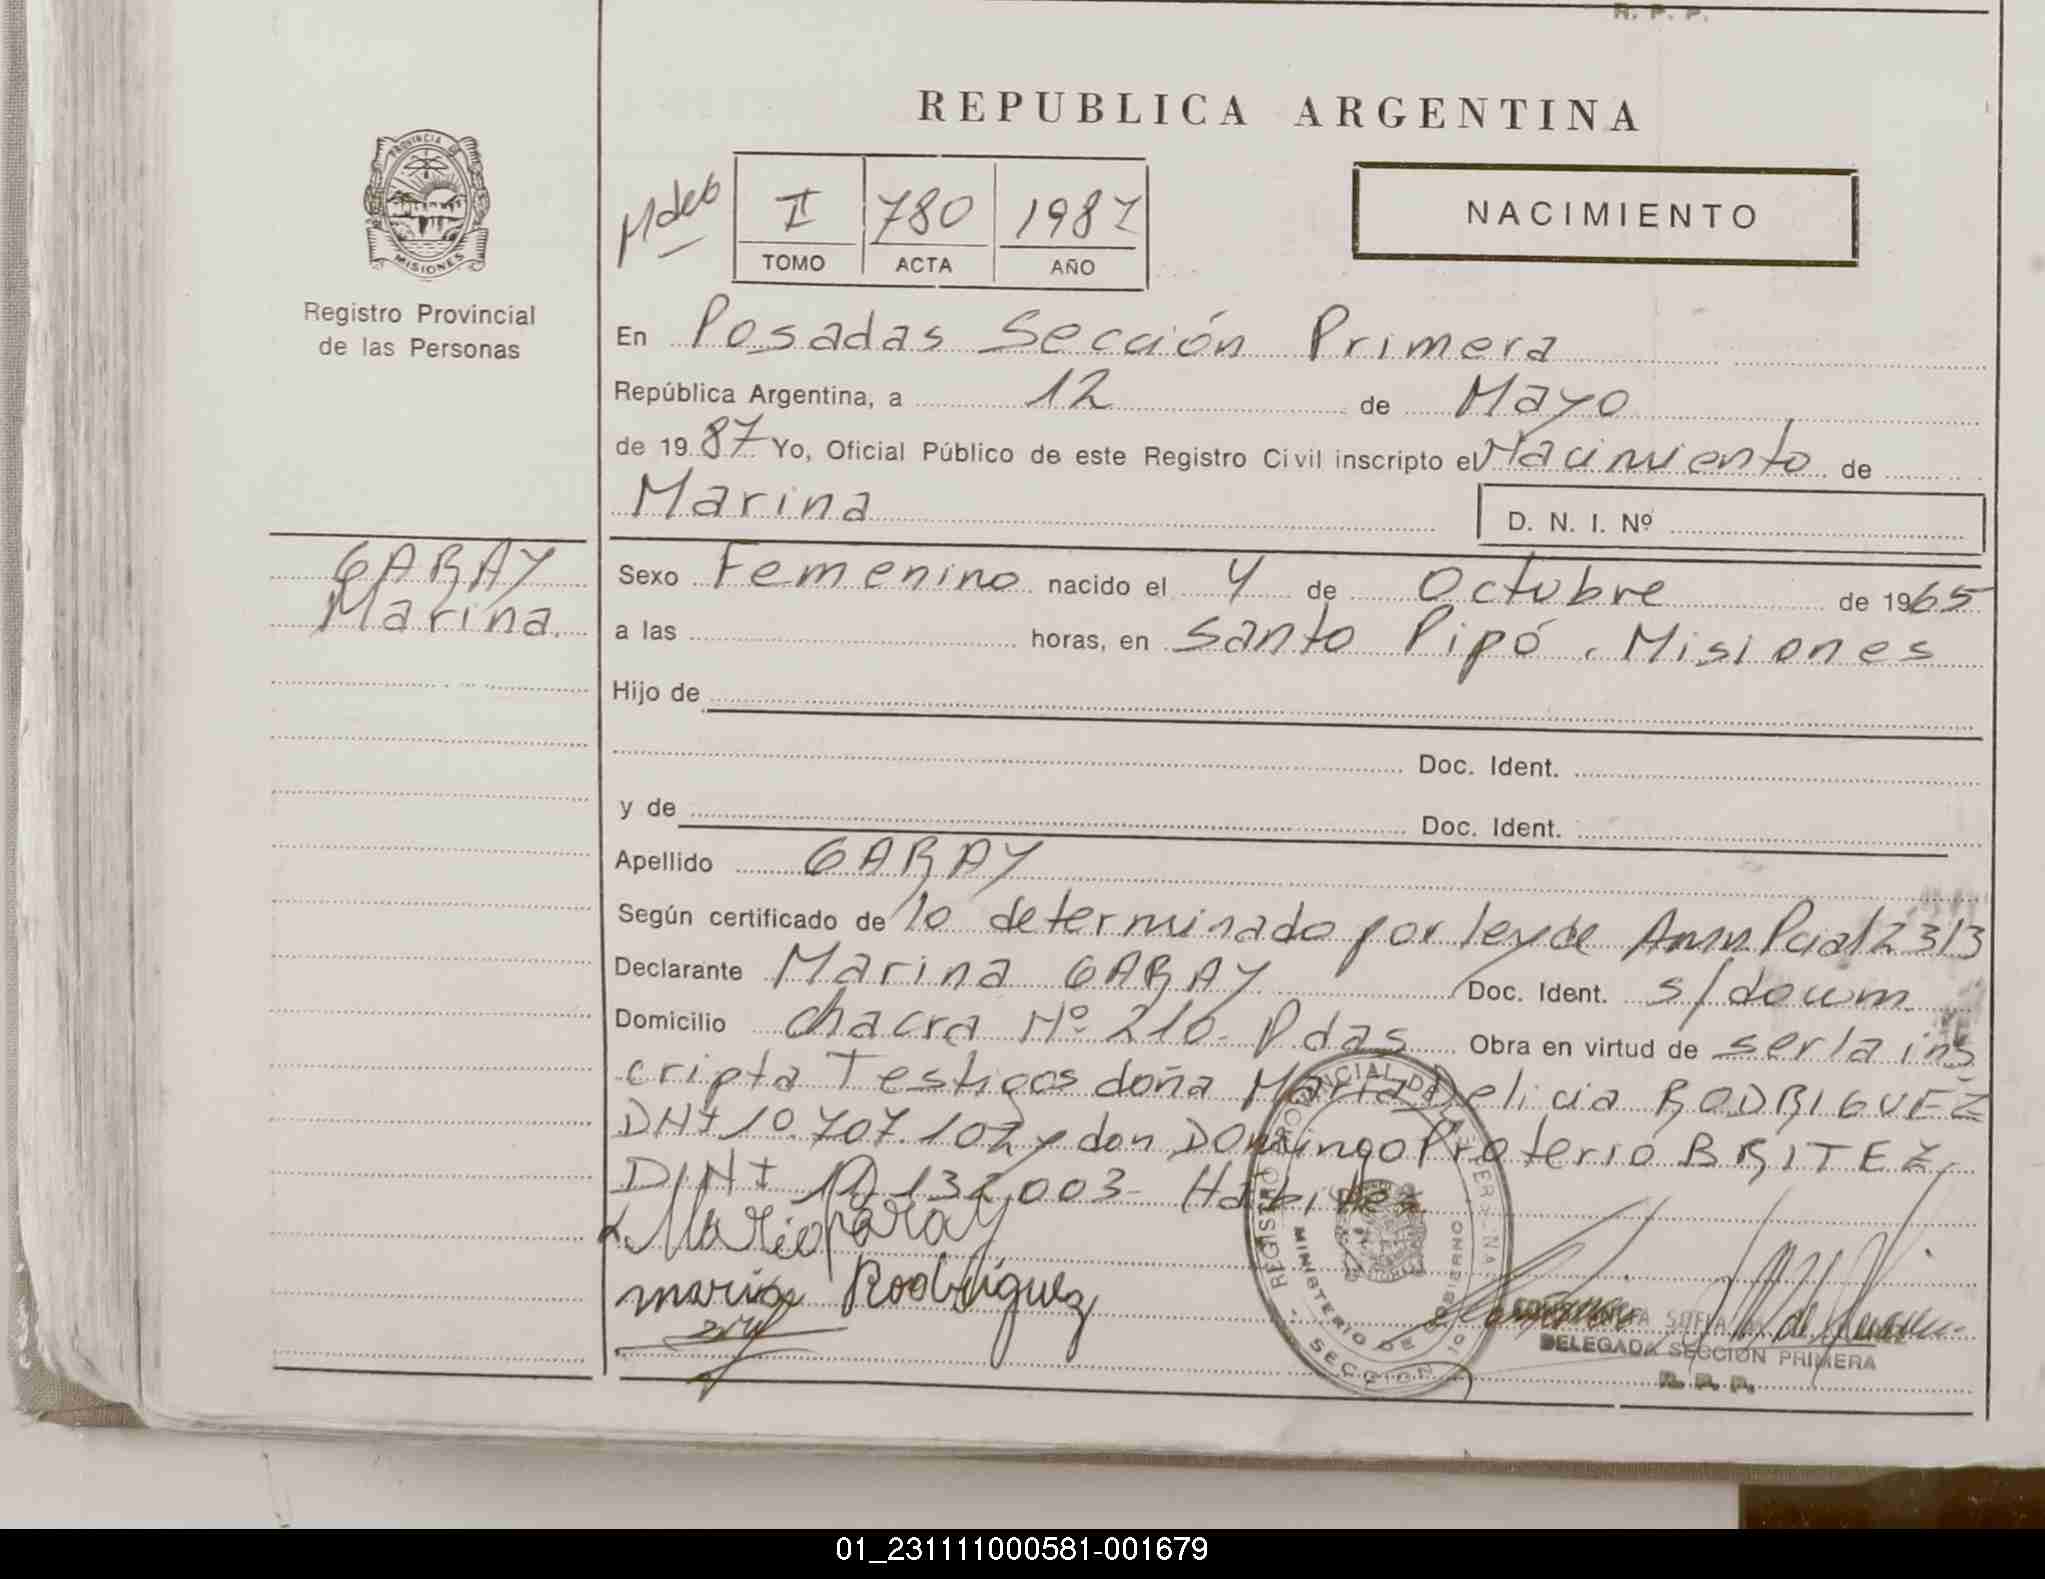 R. P. P.
REPUBLICA ARGENTINA
PROVINCIA DE
MISIONES
Registro Provincial
de las Personas
II 780 1987
TOMO ACTA AÑO
NACIMIENTO
En Posadas Sección Primera
República Argentina, a 12 de Mayo
de 1987 Yo, Oficial Público de este Registro Civil inscripto el Nacimiento de
Marina
D. N. I. Nº
GARAY
Marina.
Sexo Femenino nacido el 4 de Octubre de 1965
a las horas, en Santo Pipó. Misiones
Hijo de
Doc. Ident.
y de Doc. Ident.
Apellido GARAY
Según certificado de lo determinado por ley de Amn Pcial 2313
Declarante Marina GARAY Doc. Ident. s/docum.
Domicilio chacra Nº 210. Pdas Obra en virtud de ser la ins
cripta Testigos doña Maria Delicia RODRIGUEZ
DNI 10.707.102 y don Domingo Proterio BRITEZ,
DNI 132.003- Habiles
Garay
maria Rodriguez
REGISTRO PROVINCIAL DE LAS PERSONAS
MINISTERIO DE GOBIERNO
SECCION 1º
SOFIA
DELEGADA SECCION PRIMERA
R. P. P.
01_231111000581-001679